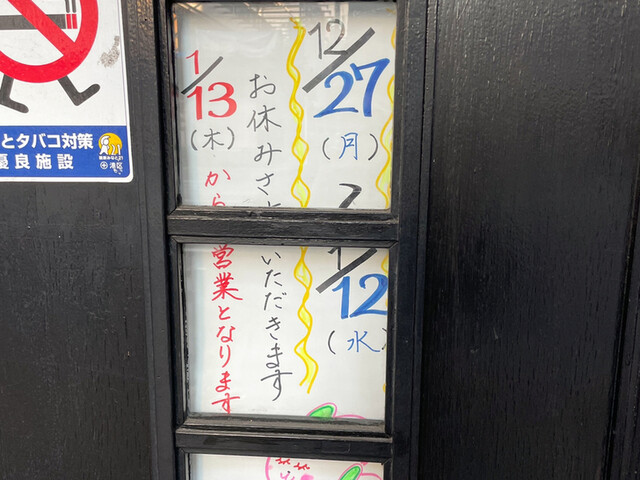 12/27
(月)
1/12
(水)
お休みさ
いただきます
1/13
(木)
から
営業となります
とタバコ対策
優良施設
港区